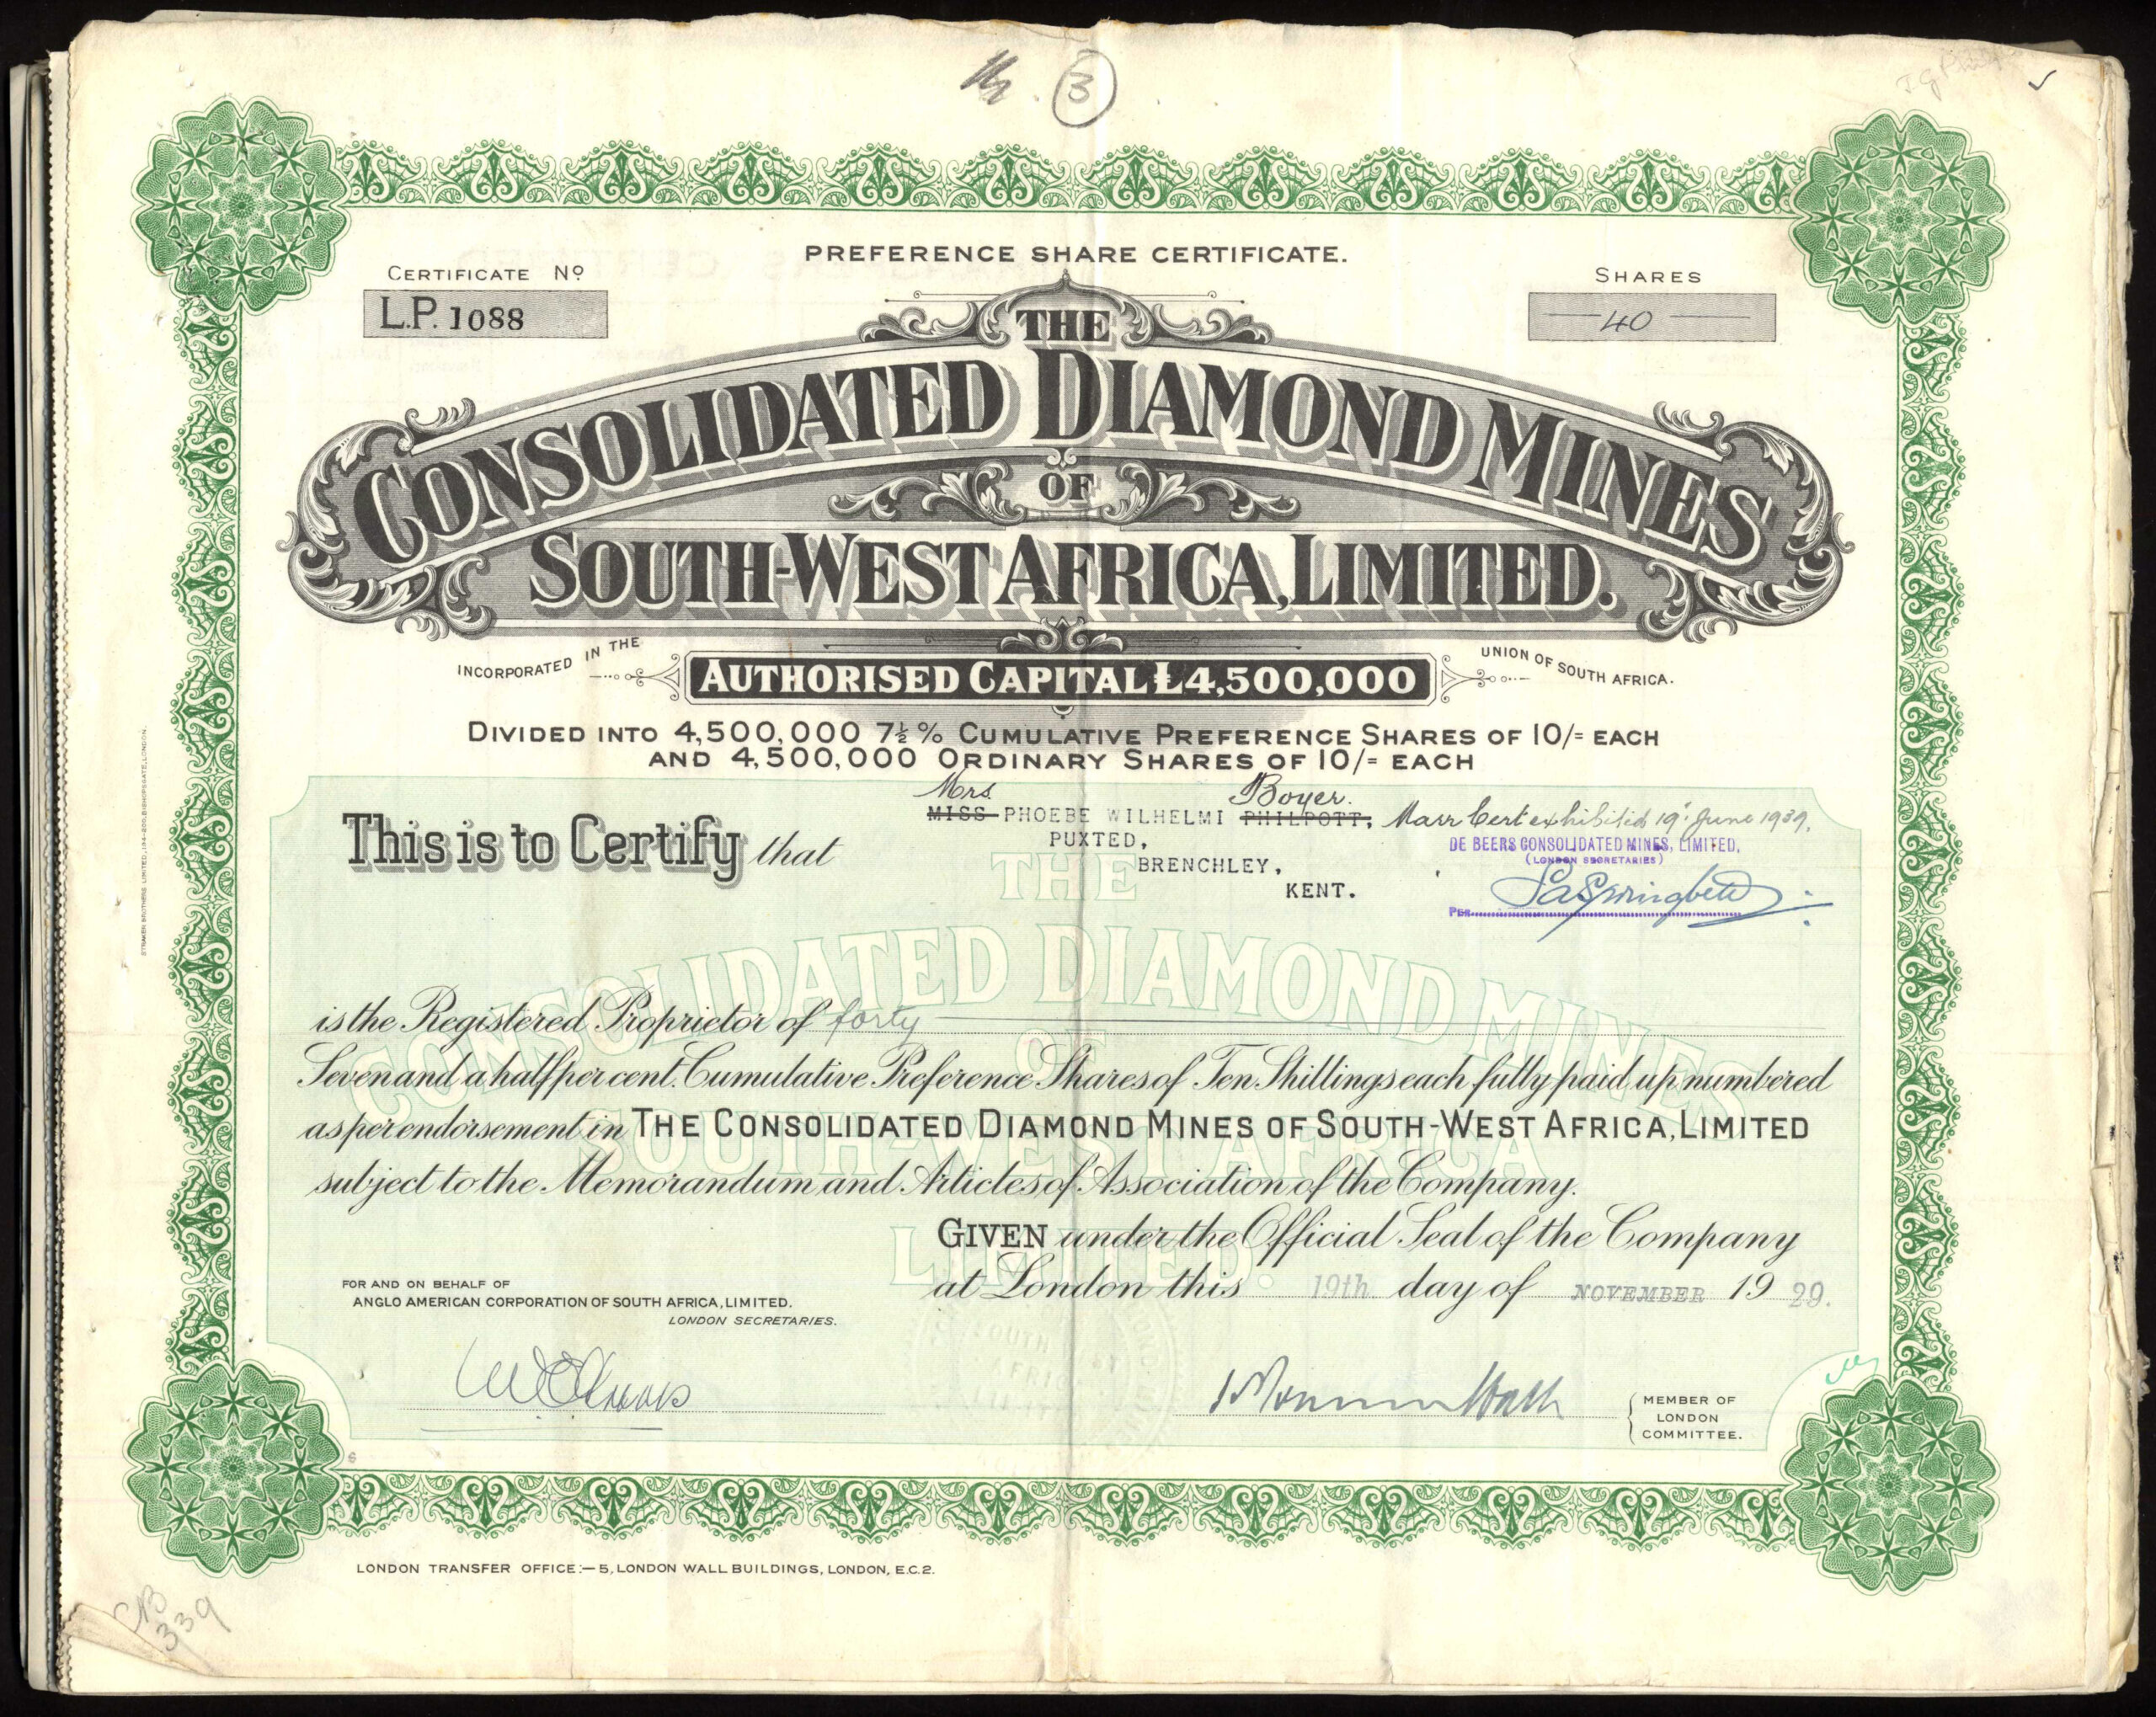 3
PREFERENCE SHARE CERTIFICATE.
CERTIFICATE Nº
L.P. 1088
SHARES
40
THE
CONSOLIDATED DIAMOND MINES
OF
SOUTH-WEST AFRICA, LIMITED.
INCORPORATED IN THE UNION OF SOUTH AFRICA.
AUTHORISED CAPITAL £4,500,000
DIVIDED INTO 4,500,000 7½% CUMULATIVE PREFERENCE SHARES OF 10/= EACH
AND 4,500,000 ORDINARY SHARES OF 10/= EACH
Mrs. Boyer.
This is to Certify that MISS PHOEBE WILHELMI PHILPOTT, Marr Cert exhibited 19 June 1939.
PUXTED,
BRENCHLEY,
KENT.
DE BEERS CONSOLIDATED MINES, LIMITED,
(LONDON SECRETARIES)
PER
THE
CONSOLIDATED DIAMOND MINES
OF
SOUTH-WEST AFRICA
LIMITED.
is the Registered Proprietor of forty
Seven and a half per cent. Cumulative Preference Shares of Ten Shillings each fully paid up numbered
as per endorsement in THE CONSOLIDATED DIAMOND MINES OF SOUTH-WEST AFRICA, LIMITED
subject to the Memorandum and Articles of Association of the Company.
GIVEN under the Official Seal of the Company
at London this 19th day of NOVEMBER 1929.
FOR AND ON BEHALF OF
ANGLO AMERICAN CORPORATION OF SOUTH AFRICA, LIMITED.
LONDON SECRETARIES.
MEMBER OF
LONDON
COMMITTEE.
LONDON TRANSFER OFFICE:— 5, LONDON WALL BUILDINGS, LONDON, E.C.2.
339